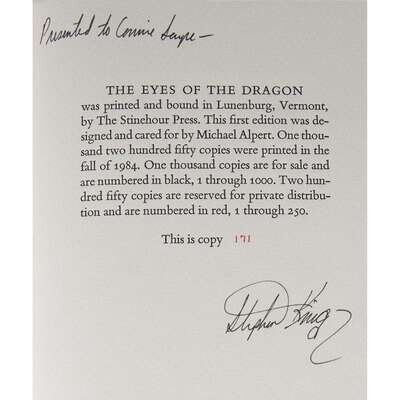 Presented to Connie Sayre —
THE EYES OF THE DRAGON
was printed and bound in Lunenburg, Vermont,
by The Stinehour Press. This first edition was de-
signed and cared for by Michael Alpert. One thou-
sand two hundred fifty copies were printed in the
fall of 1984. One thousand copies are for sale and
are numbered in black, 1 through 1000. Two hun-
dred fifty copies are reserved for private distribu-
tion and are numbered in red, 1 through 250.
This is copy 171
Stephen King